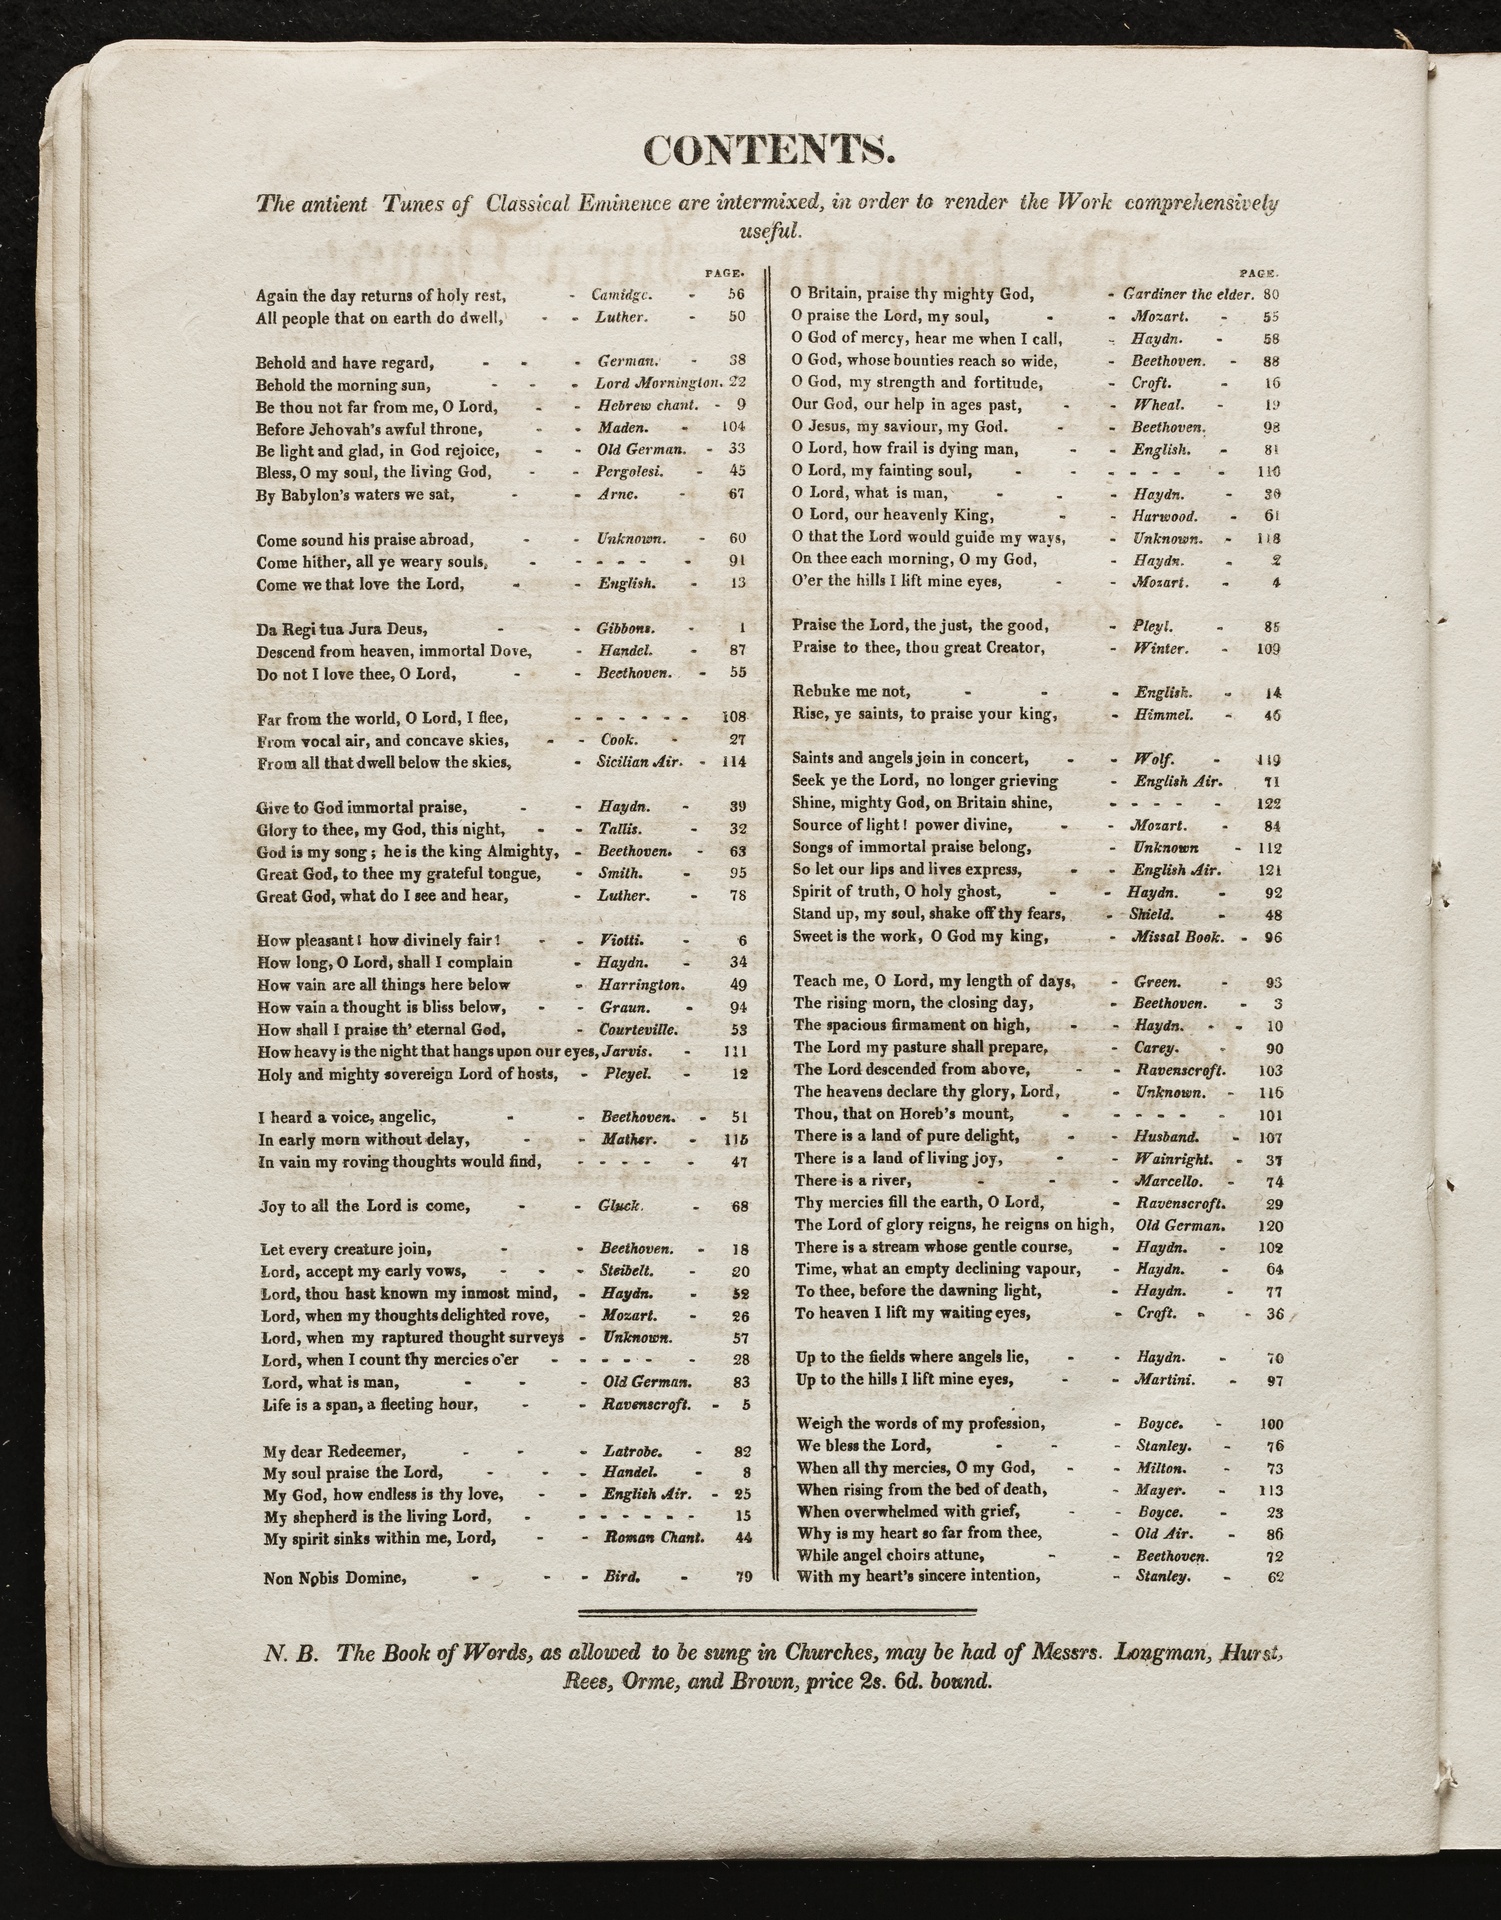 CONTENTS.
The antient Tunes of Classical Eminence are intermixed, in order to render the Work comprehensively
useful.
PAGE.
Again the day returns of holy rest, - Camidge. - 56
All people that on earth do dwell, - - Luther. - 50
Behold and have regard, - - - German. - 38
Behold the morning sun, - - - Lord Mornington. 22
Be thou not far from me, O Lord, - - Hebrew chant. - 9
Before Jehovah's awful throne, - - Maden. - 104
Be light and glad, in God rejoice, - - Old German. - 33
Bless, O my soul, the living God, - - Pergolesi. - 45
By Babylon's waters we sat, - - Arne. - 67
Come sound his praise abroad, - - Unknown. - 60
Come hither, all ye weary souls, - - - - - - 91
Come we that love the Lord, - - English. - 13
Da Regi tua Jura Deus, - - Gibbons. - 1
Descend from heaven, immortal Dove, - Handel. - 87
Do not I love thee, O Lord, - - Beethoven. - 55
Far from the world, O Lord, I flee, - - - - - - 108
From vocal air, and concave skies, - - Cook. - 27
From all that dwell below the skies, - Sicilian Air. - 114
Give to God immortal praise, - - Haydn. - 39
Glory to thee, my God, this night, - - Tallis. - 32
God is my song; he is the king Almighty, - Beethoven. - 63
Great God, to thee my grateful tongue, - Smith. - 95
Great God, what do I see and hear, - Luther. - 78
How pleasant! how divinely fair! - - Viotti. - 6
How long, O Lord, shall I complain - Haydn. - 34
How vain are all things here below - Harrington. 49
How vain a thought is bliss below, - - Graun. - 94
How shall I praise th' eternal God, - Courteville. 53
How heavy is the night that hangs upon our eyes, Jarvis. - 111
Holy and mighty sovereign Lord of hosts, - Pleyel. - 12
I heard a voice, angelic, - - Beethoven. - 51
In early morn without delay, - - Mather. - 115
In vain my roving thoughts would find, - - - - - 47
Joy to all the Lord is come, - - Gluck. - 68
Let every creature join, - - Beethoven. - 18
Lord, accept my early vows, - - - Steibelt. - 20
Lord, thou hast known my inmost mind, - Haydn. - 52
Lord, when my thoughts delighted rove, - Mozart. - 26
Lord, when my raptured thought surveys - Unknown. 57
Lord, when I count thy mercies o'er - - - - - - 28
Lord, what is man, - - - Old German. 83
Life is a span, a fleeting hour, - - Ravenscroft. - 5
My dear Redeemer, - - - Latrobe. - 82
My soul praise the Lord, - - - Handel. - 8
My God, how endless is thy love, - - English Air. - 25
My shepherd is the living Lord, - - - - - - - 15
My spirit sinks within me, Lord, - - Roman Chant. 44
Non Nobis Domine, - - - Bird. - 79
PAGE.
O Britain, praise thy mighty God, - Gardiner the elder. 80
O praise the Lord, my soul, - - Mozart. - 55
O God of mercy, hear me when I call, - Haydn. - 58
O God, whose bounties reach so wide, - Beethoven. - 88
O God, my strength and fortitude, - Croft. - 16
Our God, our help in ages past, - - Wheal. - 19
O Jesus, my saviour, my God. - - Beethoven. 98
O Lord, how frail is dying man, - - English. - 81
O Lord, my fainting soul, - - - - - - - 110
O Lord, what is man, - - - Haydn. - 30
O Lord, our heavenly King, - - Harwood. - 61
O that the Lord would guide my ways, - Unknown. - 118
On thee each morning, O my God, - Haydn. - 2
O'er the hills I lift mine eyes, - - Mozart. - 4
Praise the Lord, the just, the good, - Pleyl. - 85
Praise to thee, thou great Creator, - Winter. - 109
Rebuke me not, - - - English. - 14
Rise, ye saints, to praise your king, - Himmel. - 46
Saints and angels join in concert, - - Wolf. - 119
Seek ye the Lord, no longer grieving - English Air. 71
Shine, mighty God, on Britain shine, - - - - - 122
Source of light! power divine, - - Mozart. - 84
Songs of immortal praise belong, - Unknown - 112
So let our lips and lives express, - - English Air. 121
Spirit of truth, O holy ghost, - - Haydn. - 92
Stand up, my soul, shake off thy fears, - Shield. - 48
Sweet is the work, O God my king, - Missal Book. - 96
Teach me, O Lord, my length of days, - Green. - 93
The rising morn, the closing day, - Beethoven. - 3
The spacious firmament on high, - - Haydn. - - 10
The Lord my pasture shall prepare, - Carey. - 90
The Lord descended from above, - - Ravenscroft. 103
The heavens declare thy glory, Lord, - Unknown. - 116
Thou, that on Horeb's mount, - - - - - - 101
There is a land of pure delight, - - Husband. - 107
There is a land of living joy, - - Wainright. - 37
There is a river, - - - Marcello. - 74
Thy mercies fill the earth, O Lord, - Ravenscroft. 29
The Lord of glory reigns, he reigns on high, Old German. 120
There is a stream whose gentle course, - Haydn. - 102
Time, what an empty declining vapour, - Haydn. - 64
To thee, before the dawning light, - Haydn. - 77
To heaven I lift my waiting eyes, - Croft. - - 36
Up to the fields where angels lie, - - Haydn. - 70
Up to the hills I lift mine eyes, - - Martini. - 97
Weigh the words of my profession, - Boyce. - 100
We bless the Lord, - - - Stanley. - 76
When all thy mercies, O my God, - - Milton. - 73
When rising from the bed of death, - Mayer. - 113
When overwhelmed with grief, - - Boyce. - 23
Why is my heart so far from thee, - Old Air. - 86
While angel choirs attune, - - Beethoven. 72
With my heart's sincere intention, - Stanley. - 62
N. B. The Book of Words, as allowed to be sung in Churches, may be had of Messrs. Longman, Hurst,
Rees, Orme, and Brown, price 2s. 6d. bound.